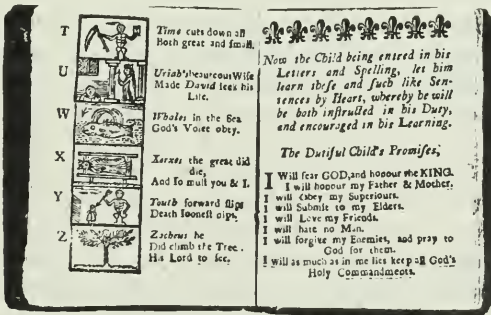 T
Time cuts down all
Both great and small.
U
Uriah's beauteous Wife
Made David seek his
Life.
W
Whales in the Sea
God's Voice obey.
X
Xerxes the great did
die,
And so must you & I.
Y
Youth forward slips
Death soonest nips.
Z
Zacheus he
Did climb the Tree
His Lord to see,
Now the Child being entred in his
Letters and Spelling, let him
learn these and such like Sen-
tences by Heart, whereby he will
be both instructed in his Duty,
and encouraged in his Learning.
The Dutiful Child's Promises,
I Will fear GOD, and honour the KING.
I will honour my Father & Mother.
I will Obey my Superiours.
I will Submit to my Elders.
I will Love my Friends.
I will hate no Man.
I will forgive my Enemies, and pray to
God for them.
I will as much as in me lies keep all God's
Holy Commandments.